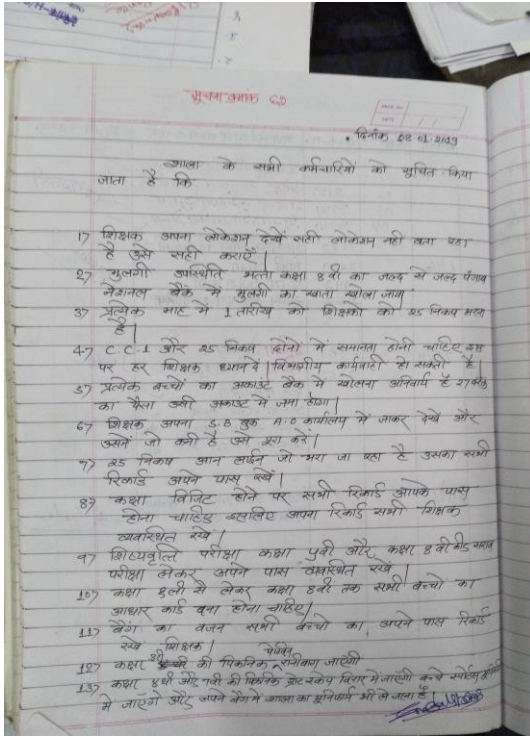 सूचना क्रमांक 62
दिनांक
शाला के सभी कर्मचारियों को सूचित किया
जाता है कि
1) शिक्षक अपना लोकेशन देखें सही लोकेशन नही बता रहा
है उसे सही कराएँ |
2) मुलगी उपस्थिति भत्ता कक्षा 8 वी का जल्द से जल्द पंजाब
नेशनल बैंक में मुलगी का खाता खोला जाए |
3) प्रत्येक माह में 1 तारीख को शिक्षकों को 25 निकष भरना
है |
4) C.C-1 और 25 निकष दोनों में समानता होनी चाहिए इस
पर हर शिक्षक ध्यान दें | विभागीय कार्यवाही हो सकती है |
5) प्रत्येक बच्चों का अकाउंट बैंक में खोलना अनिवार्य है 27
का पैसा उसी अकाउंट में जमा होगा |
6) शिक्षक अपना S.B बुक A.O कार्यालय में जाकर देखें और
उसमें जो कमी है उसे पूरा करें |
7) 25 निकष आन लाईन जो भरा जा रहा है उसका सभी
रिकार्ड अपने पास रखें |
8) कक्षा विजिट होने पर सभी रिकार्ड आपके पास
होना चाहिए इसलिए अपना रिकार्ड सभी शिक्षक
व्यवस्थित रखें |
9) शिष्यवृत्ति परीक्षा कक्षा 5वी और कक्षा 8 वी की सराव
परीक्षा लेकर अपने पास व्यवस्थित रखें |
10) कक्षा 1ली से लेकर कक्षा 8वी तक सभी बच्चो का
आधार कार्ड बना होना चाहिए |
11) बैग का वजन सभी बच्चो का अपने पास रिकार्ड
रखें शिक्षक |
12) कक्षा की पिकनिक रानीबाग जाएगी
13) कक्षा और 7वी की पिकनिक विरार में जाएगी बच्चे
में जाएंगे और अपने बैग में शाला का युनिफार्म भी ले जाना है |